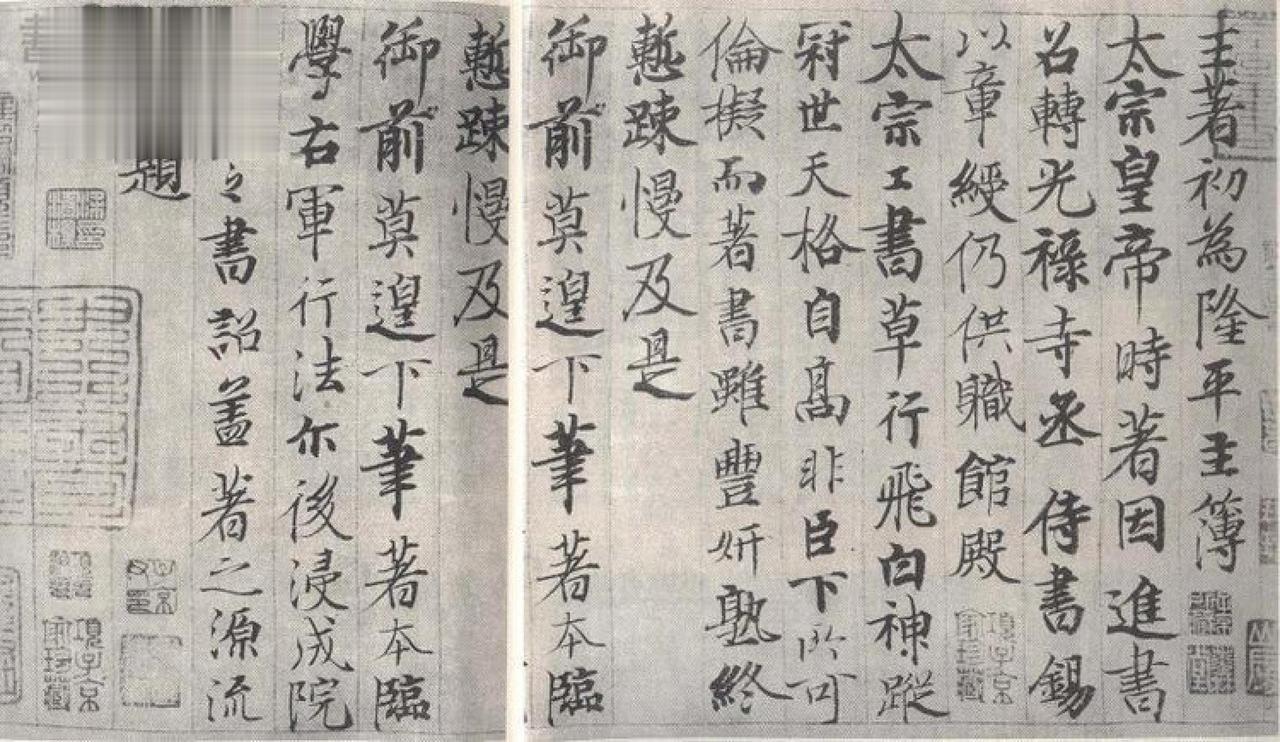 王著初為隆平主簿
太宗皇帝時著因進書
召轉光祿寺丞侍書錫
以章綬仍供職館殿
項子京家珍藏
太宗工書草行飛白神蹤
冠世天格自高非臣下所可
倫擬而著書雖豐妍熟終
慙疎慢及是
御前莫遑下筆著本臨
慙疎慢及是
御前莫遑下筆著本臨
學右軍行法尓後浸成院
之書詔蓋著之源流
題
項子京家珍藏